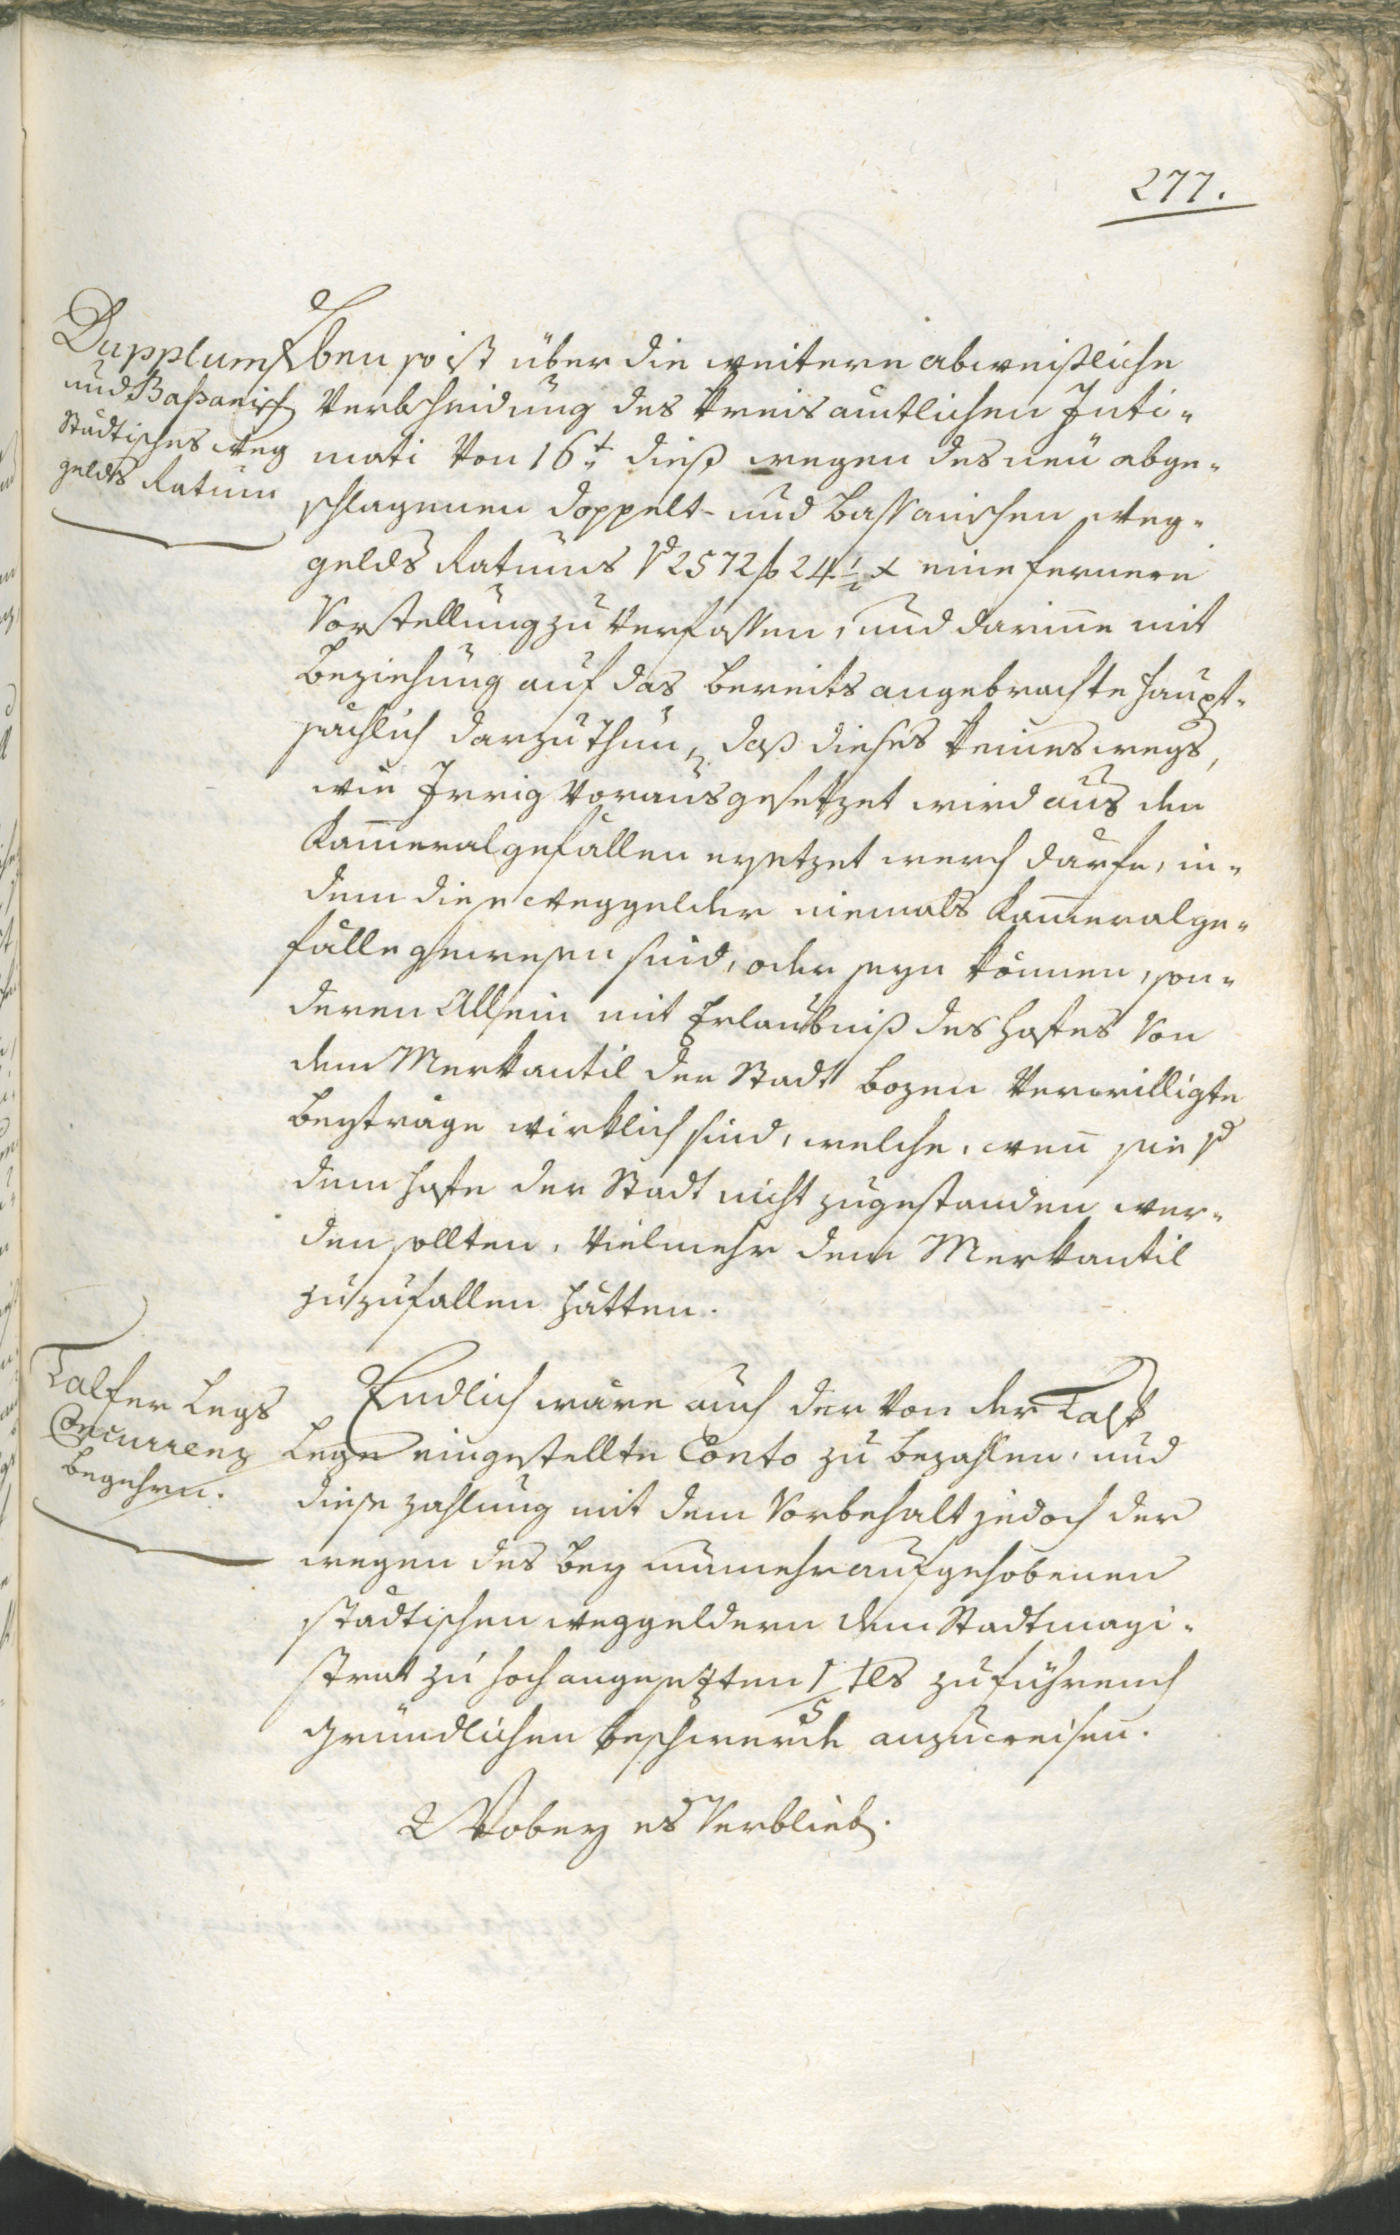 277.
Dupplum
und Baßanisch
Städtisches Weg
gelds Ratum
Eben so ist über die weitere abweisliche
Verbscheidung des Kreisamtlichen Inti-
mati Von 16t dieß wegen des neu abge-
schlagenen doppelt- und Bassanischen Weg-
gelds Ratums 2572 f 24 1/2 x eine fernere
Vorstellung zu Verfassen, und darinne mit
Beziehung auf das bereits angebrachte haupt-
sächlich darzuthun, daß dieses keineswegs,
wie Irrig Vorausgesetzet wird aus den
Kameralgefällen ersetzet werden dürfe, in-
dem diese Weggelder niemals Kameralge-
fälle gewesen sind, oder seyn können, son-
deren Allein mit Erlaubniß des Hofes Von
dem Merkantil der Stadt Bozen Verwilligte
Beyträge wirklich sind, welche, wenn sie
dem Hofe der Stadt nicht zugestanden wer-
den sollten, Vielmehr dem Merkantil
zuzufallen hätten.
Talfer Legs
Concurrenz
begehren.
Endlich wäre auch der Von der Talf
Lege eingestellte Conto zu bezahlen, und
diese Zahlung mit dem Vorbehalt jedoch der
wegen des bey nunmehr aufgehobenen
städtischen Weggeldern dem Stadtmagi-
strat zu hoch angesetzten 1/5 tls zu führend
Gründlichen Beschwerde anzuweisen.
Wobey es Verblieb.